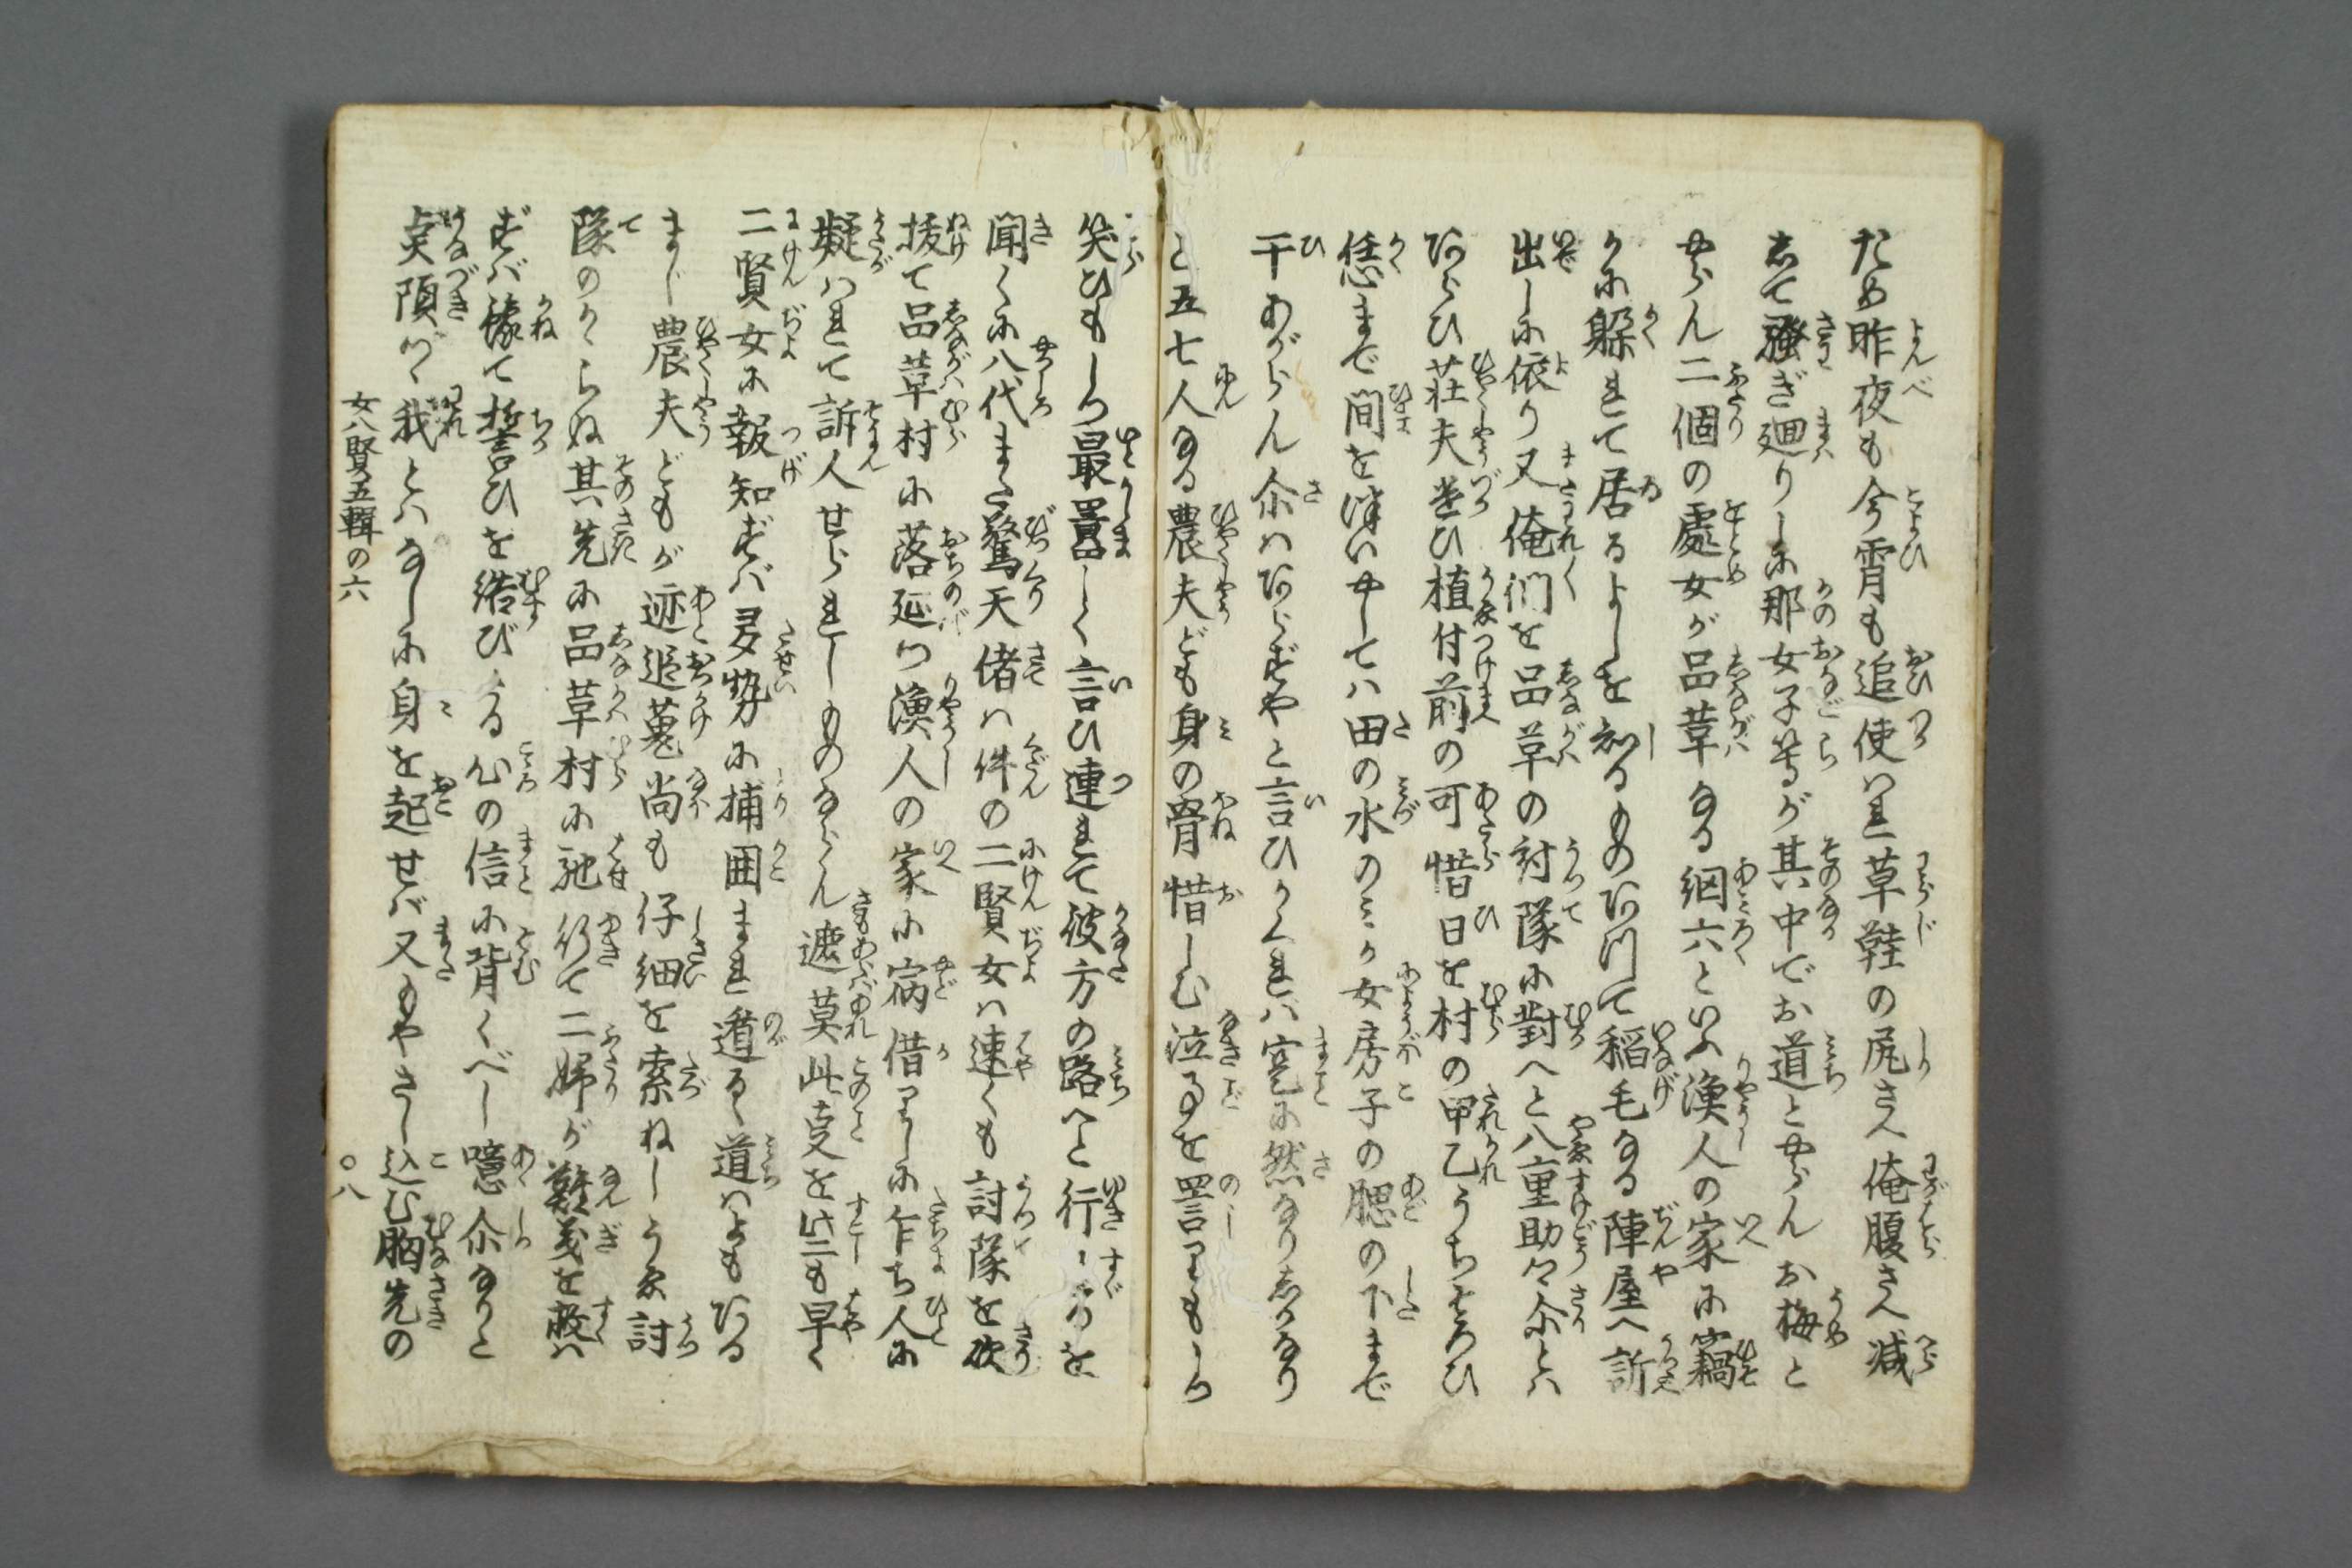 ため昨夜も今宵も追使はれ草鞋の尻さへ俺腹さへ減
して騒ぎ廻りしに那女子等が其中でお道とやらんお梅と
やらん二個の處女が品革なる網六といふ漁人の家に竊
かに躱れて居るよしを知るものありて稲毛なる陣屋へ訴
出しに依り又俺们を品革の討隊に對へと八重助々尓とハ
あらひ荘夫遣ひ植付前の可惜日を村の甲乙うちそろひ
恁まで間を潰いやしてハ田の水のミか女房子の腮の下まで
干あがらん尓ハあらずやと言ひかくれバ寔に然なりしかなり
と五七人なる農夫ども身の骨惜しむ泣事を罟りもしつ
笑ひもしつ最囂しく言ひ連れて彼方の路へと行過るを
聞くに八代また驚天偖ハ件の二賢女ハ速くも討隊を砍
抜て品革村に落延つ漁人の家に宿借りしに乍ち人に
疑ハれて訴人せられしものならん遮莫此支を些も早く
二賢女に報知ずバ多勢に捕囲まれ遁るゝ道ハよもある
まじ農夫どもが迹追蒐尚も仔細を索ねしうへ討
隊のかゝらぬ其先に品革村に馳行て二婦が難義を救ハ
ずバ豫て誓ひを結びたる心の信に背くべし噫尓なりと
点頭づく我とハなしに身を起せバ又もやさし込む胸先の
女八賢五輯の六
〇八